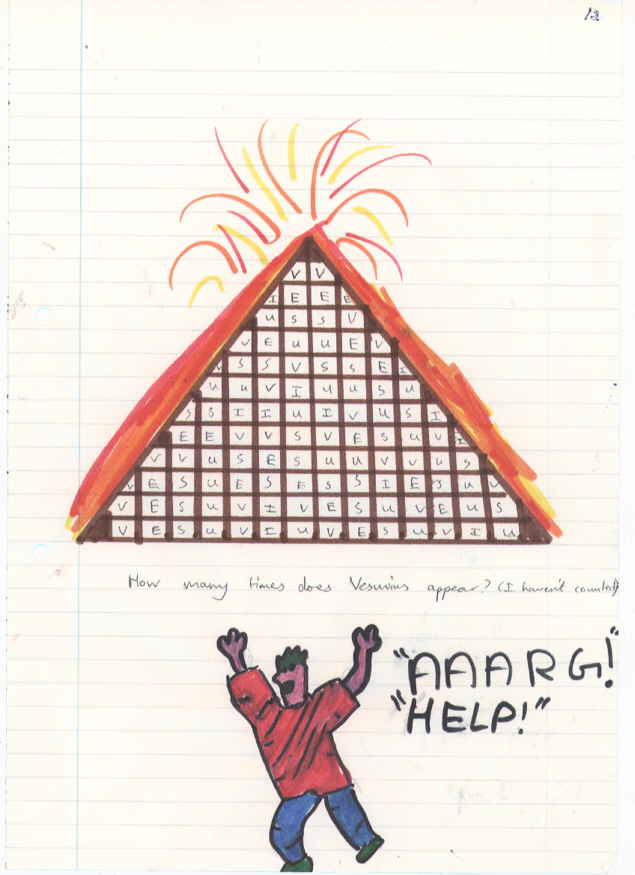 12
V V
I E E E
U S S V
V E U U E V
S S V S S E I
U U V I U U S U
S S I I U I V U S I
E E V V S V E S U V I
V V U S E S U U V V U S
V E S U E S E S S I E S U V
V E S U V I V E S U V E U S
V E S U V I U V E S U V I U S
How many times does Vesuvius appear? (I haven't counted)
"AAARG!"
"HELP!"